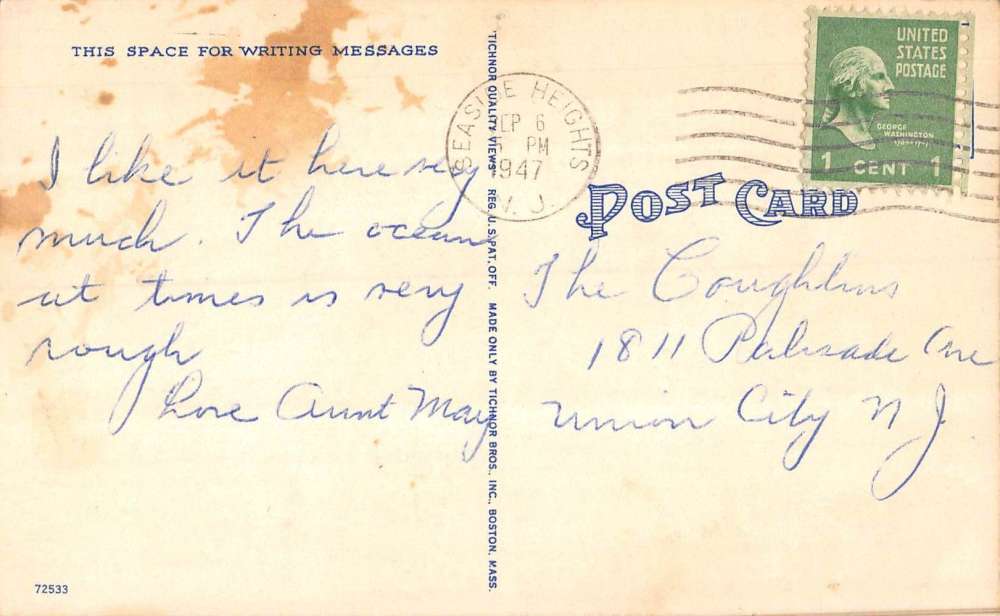 THIS SPACE FOR WRITING MESSAGES
I like it here very
much. The ocean
at times is very
rough
Love Aunt May
72533
"TICHNOR QUALITY VIEWS" REG. U. S. PAT. OFF. MADE ONLY BY TICHNOR BROS., INC., BOSTON, MASS.
SEASIDE HEIGHTS
SEP 6
PM
1947
N. J.
UNITED
STATES
POSTAGE
GEORGE
WASHINGTON
1 CENT 1
POST CARD
The Coughlins
1811 Palisade Ave
Union City N J